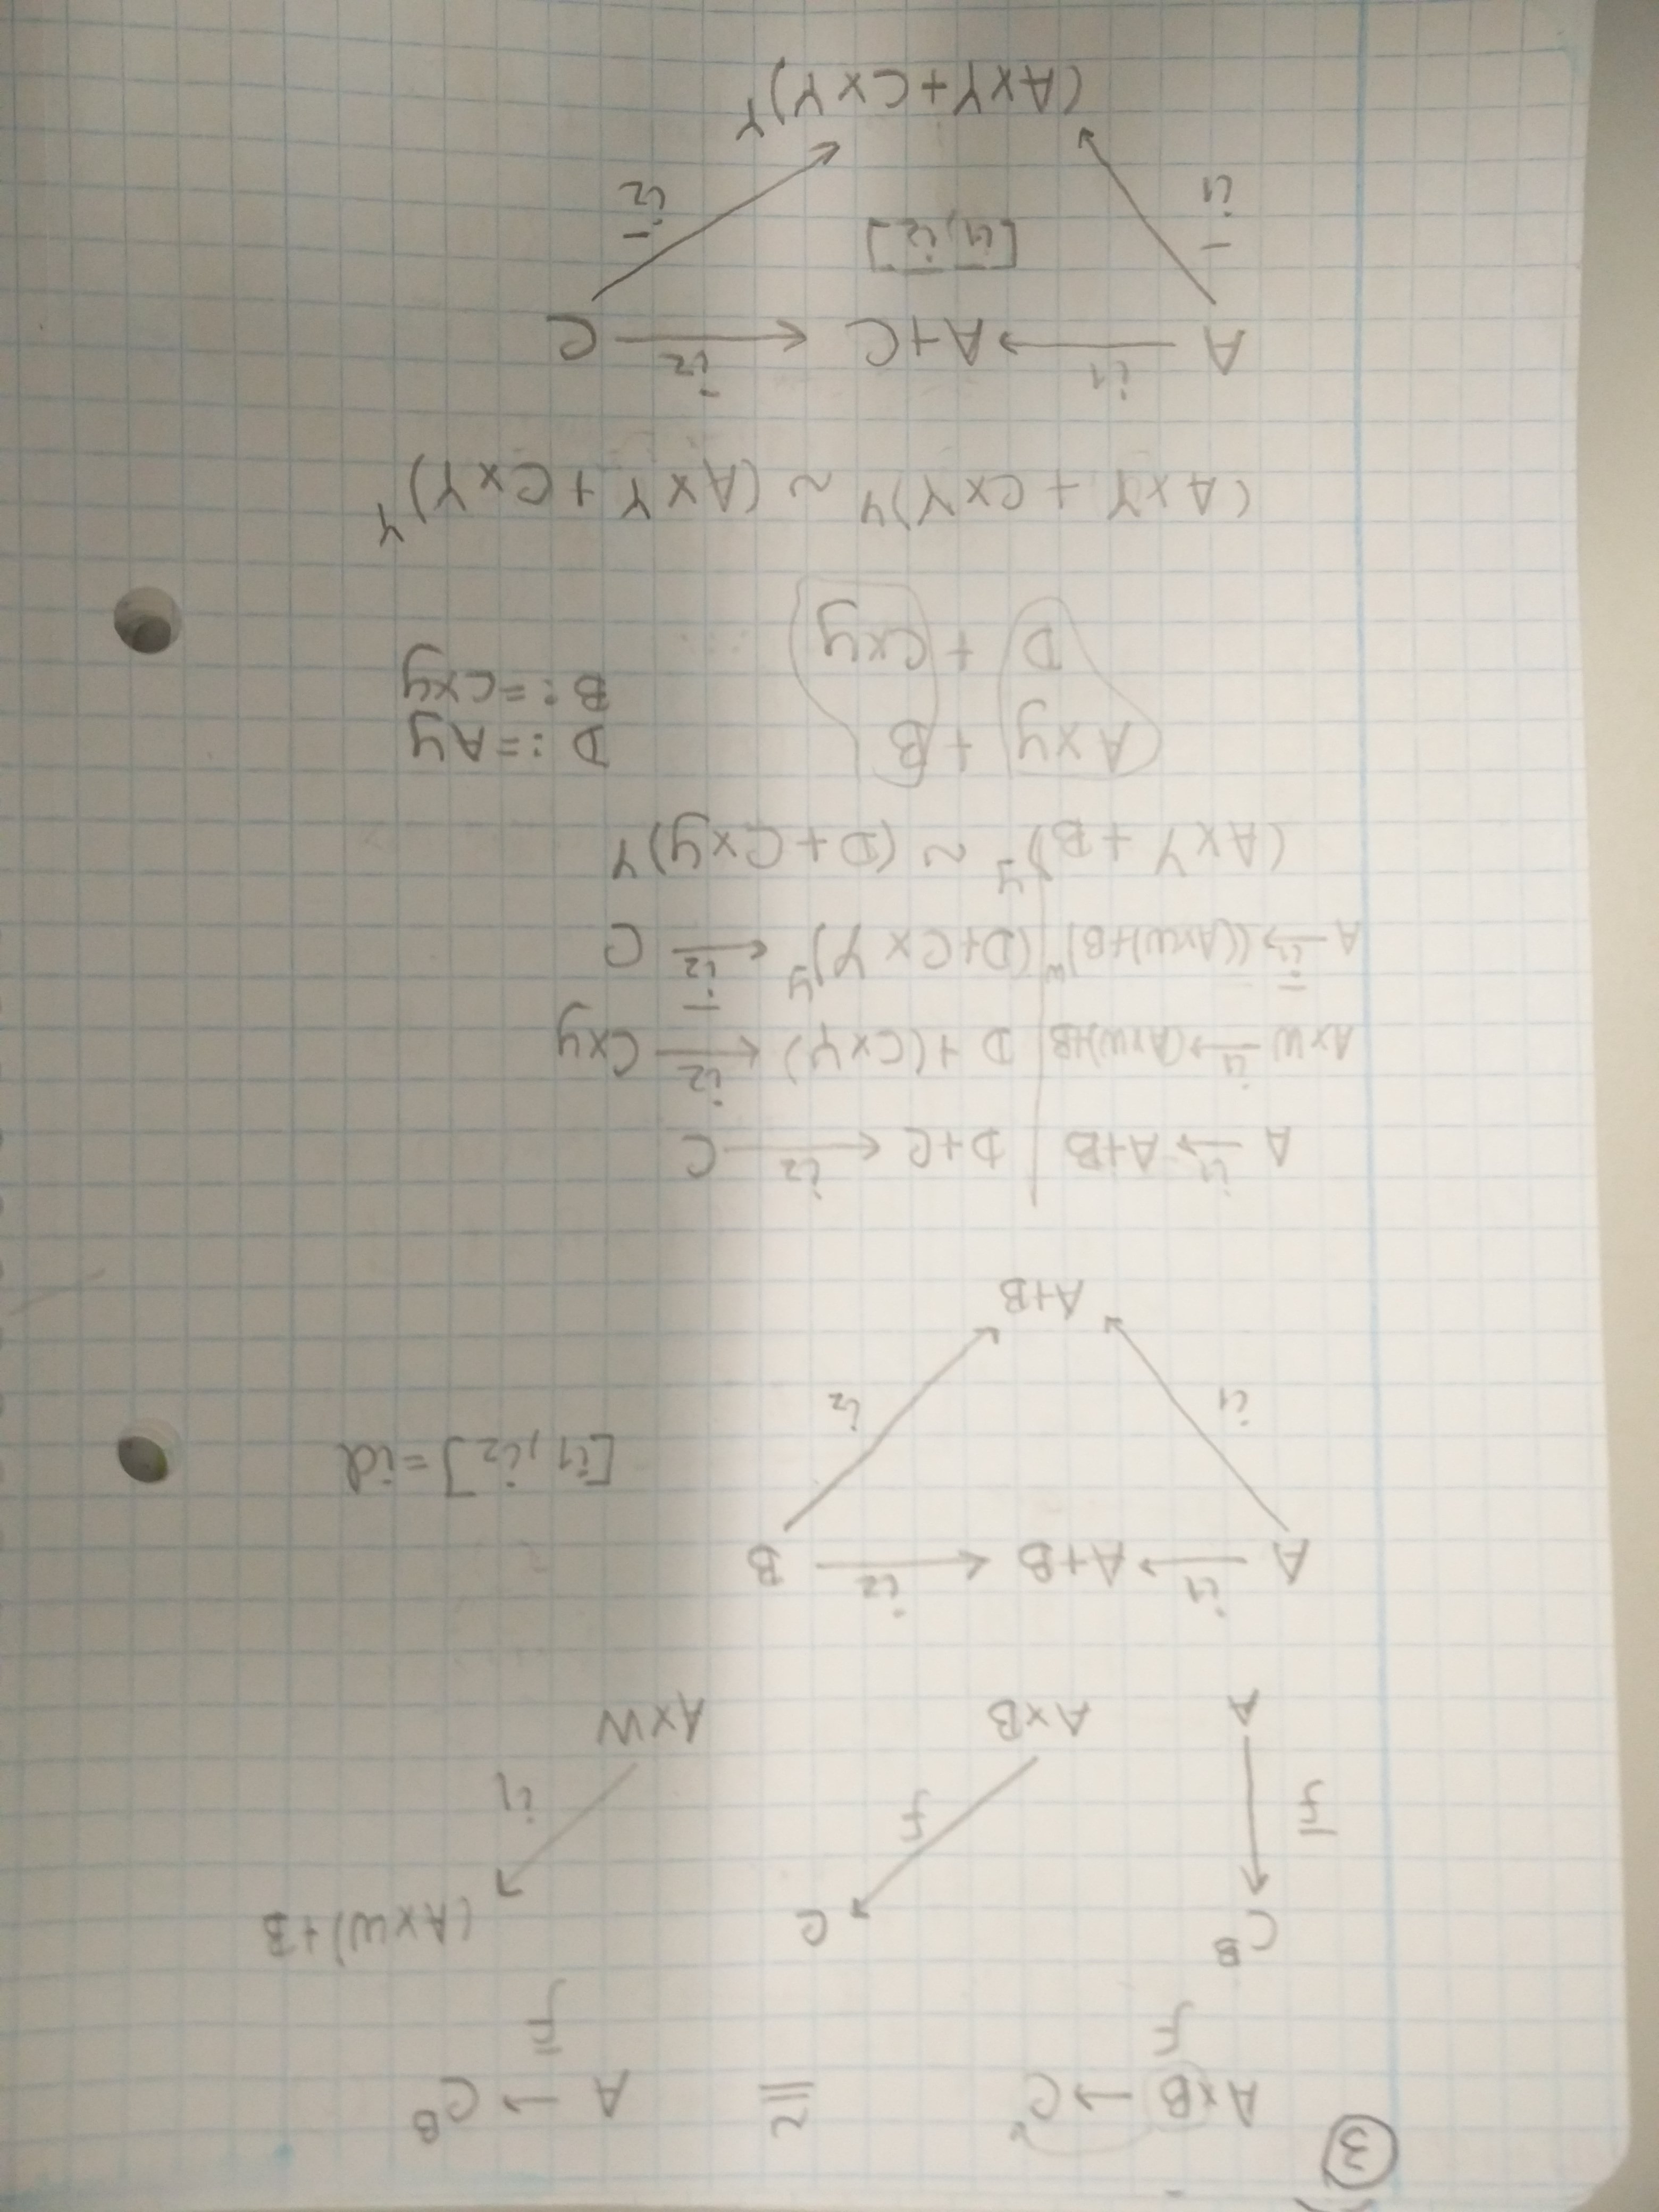 ③
A×B → C ≅ A → C^B
f f̄
C^B C (A×W)+B
f̄ f i1
A A×B A×W
A i1→ A+B ←i2 B
[i1,i2]=id
i1 i2
A+B
A i1→ A+B | D+C ←i2 C
A×W i1→ (A×W)+B | D+(C×Y) ←i2 C×y
A i̅1→ ((A×W)+B)^W | (D+C×Y)^y ←i̅2 C
(A×Y+B)^y ~ (D+C×y)^Y
A×y + B D:=Ay
D + C×y B:=C×y
(A×Y+C×Y)^y ~ (A×Y+C×Y)^Y
A i1→ A+C ←i̅2 C
i̅1 [i̅1,i̅2] i̅2
(A×Y+C×Y)^Y